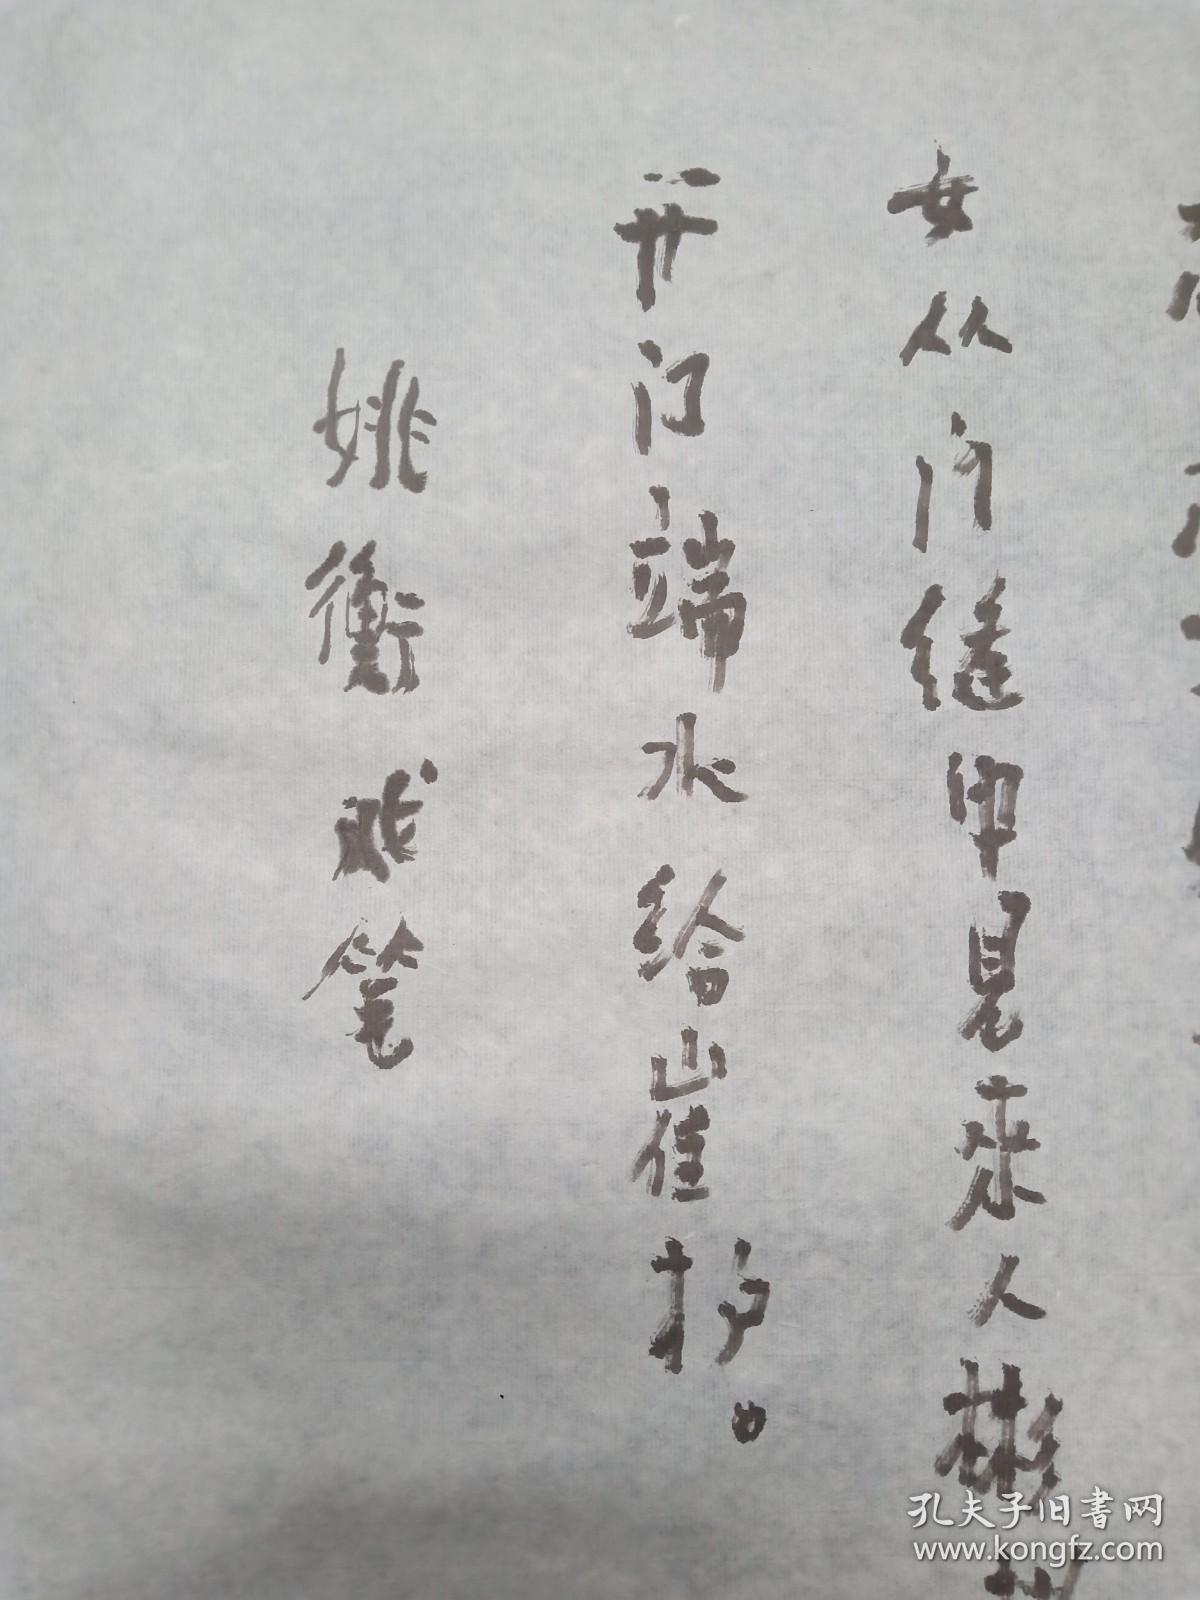 女从门缝中见来人彬
开门端水给崔护。
姚衡戏笔
孔夫子旧书网
www.kongfz.com